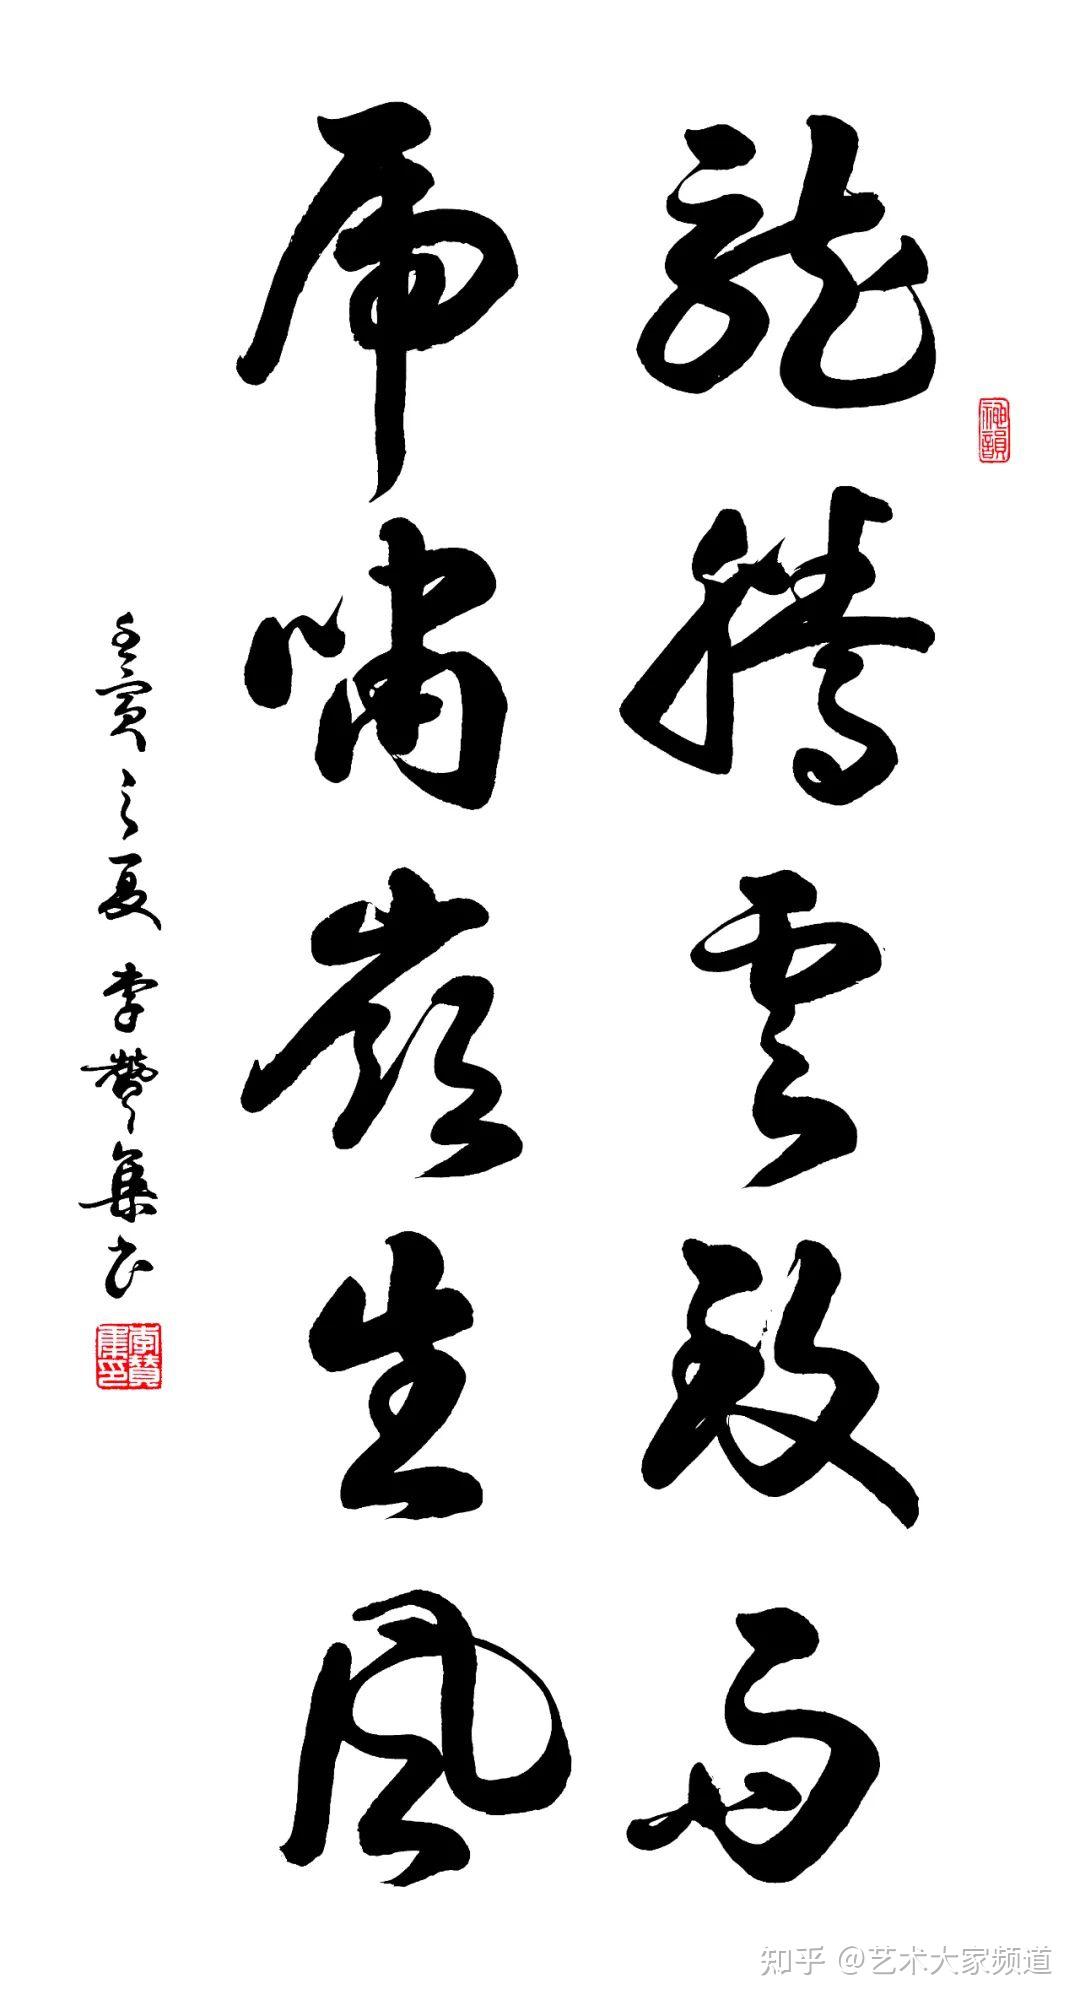 神韻
龍騰雲致雨
虎嘯嶺生風
壬寅之夏李贊集書
李贊集印
知乎 @艺术大家频道